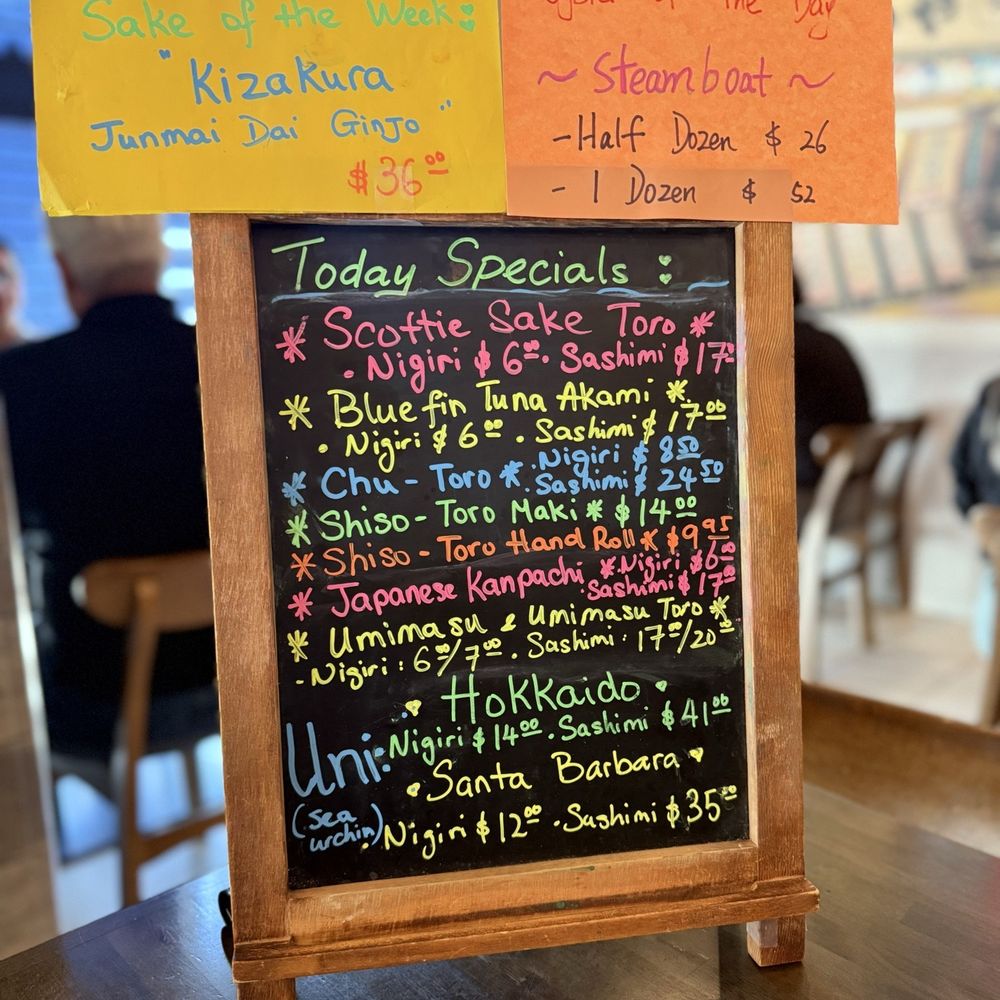 Sake of the Week:
"Kizakura
Junmai Dai Ginjo"
$36.00
of the Day
~ Steamboat ~
- Half Dozen $ 26
- 1 Dozen $ 52
Today Specials :
* Scottie Sake Toro *
. Nigiri $6.00 . Sashimi $17.00
* Bluefin Tuna Akami *
. Nigiri $6.00 . Sashimi $17.00
* Chu-Toro * . Nigiri $8.50
. Sashimi $24.50
* Shiso-Toro Maki * $14.00
* Shiso-Toro Hand Roll * $9.95
* Japanese Kanpachi * . Nigiri $6.00
. Sashimi $17.00
* Umimasu & Umimasu Toro *
- Nigiri : 6.00/7.00 . Sashimi : 17.00/20.00
Hokkaido
Uni:
(sea urchin)
Nigiri $14.00 . Sashimi $41.00
Santa Barbara
. Nigiri $12.00 . Sashimi $35.00